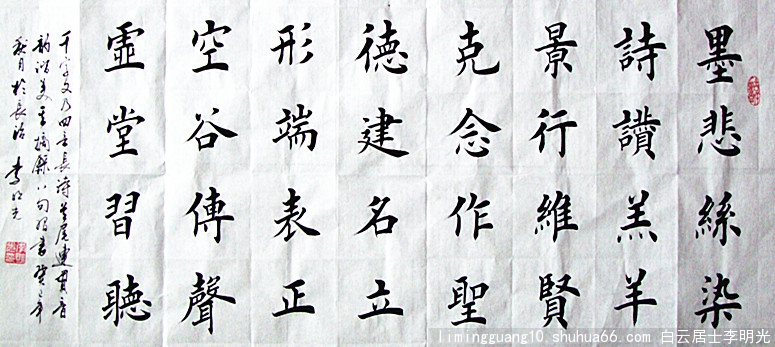 墨悲絲染
詩讚羔羊
景行維賢
克念作聖
德建名立
形端表正
空谷傳聲
虛堂習聽
千字文乃四言長詩首尾連貫音
韵諧美吉摘錄八句習書癸巳年
於長治 李明光
limingguang10.shuhua66.com 白云居士李明光